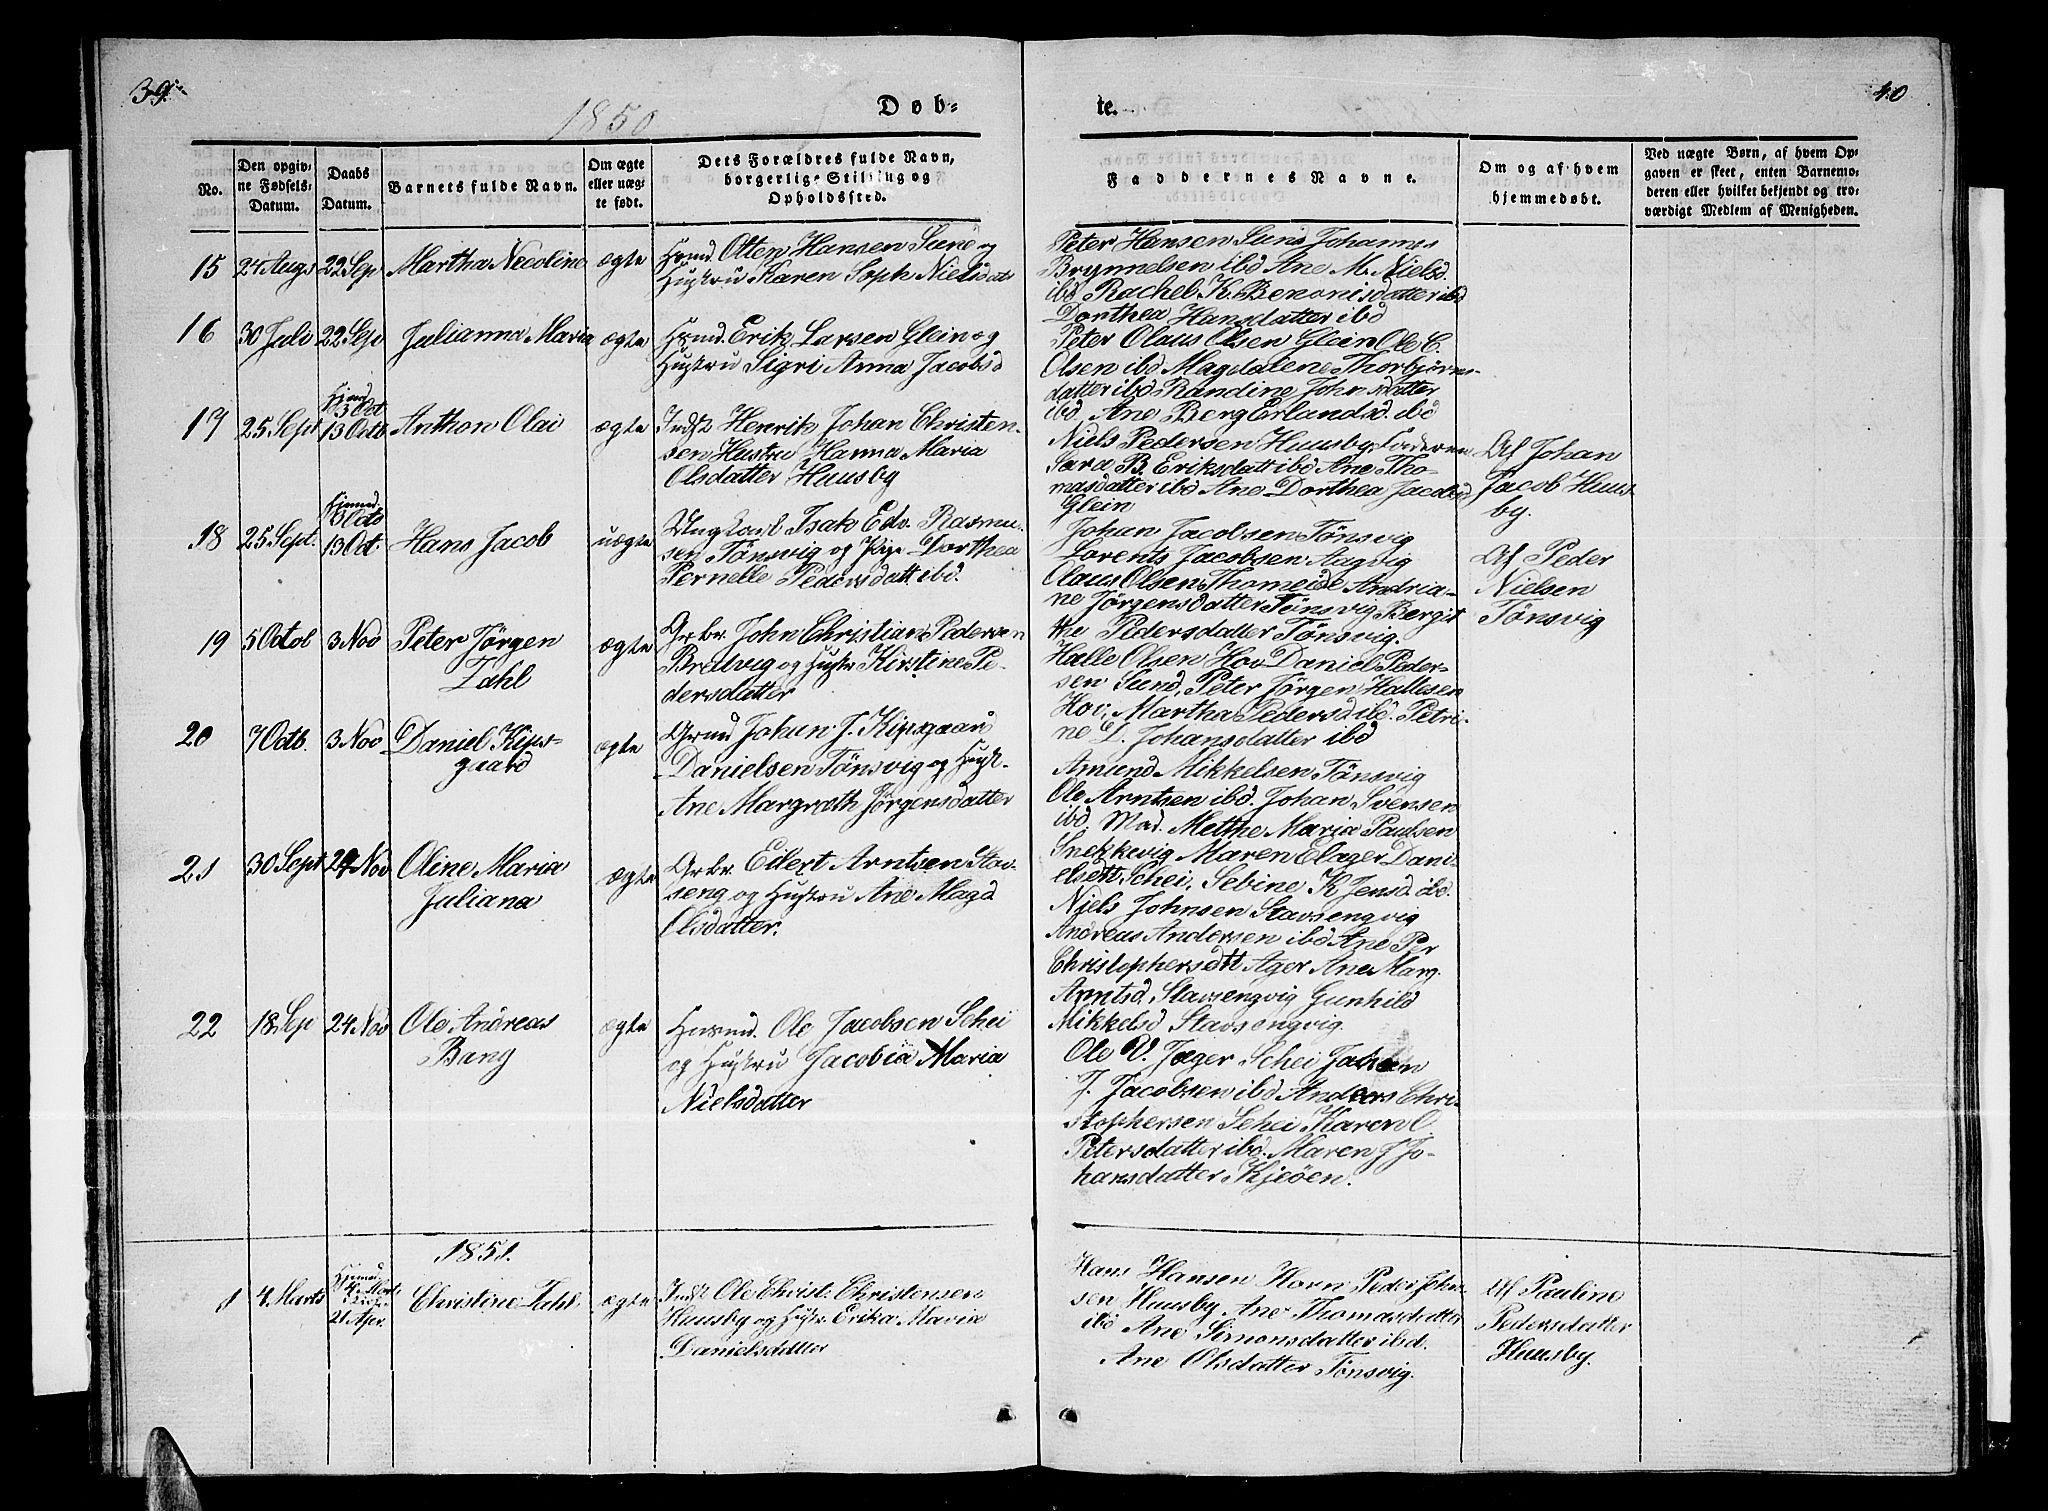 39.
40
1850
Døb-
te.
No.
Den opgiv-
ne Fødsels-
Datum.
Daabs
Datum.
Barnets fulde Navn.
Om ægte
eller uæg-
te født.
Dets Forældres fulde Navn,
borgerlige Stilling og
Opholdssted.
Faddernes Navne.
Om og af hvem
hjemmedøbt.
Ved uægte Børn, af hvem Op-
gaven er skeet, enten Barnemo-
deren eller hvilket bekjendt og tro-
værdigt Medlem af Menigheden.
15 24 Augs 22 Sep Martha Necoline ægte
Husmd. Otten Hansen Sunø og
Hustru Karen Soph Nielsdat
Peter Hansen Johannes
Brynnelsen ibd Ane M. Nielsd.
ibd Rachel K. Benonisdatter ibd
Dorthea Hansdatter ibd
16 30 Juli 22 Sep Julianna Maria ægte
Husmd. Erik Larsen Glein og
Hustru Sigri Anna Jacobsd
Peter Olaus Olsen Glein Ole C.
Olsen ibd Magdalene Thorbjørns-
datter ibd Randine Johnsdatter
ibd. Ane Berg Erlandsd. ibd
17 25 Sept Hjemd 3 Oct 13 Octb Anthon Olai ægte
Indst Henrik Johan Christen-
sen Hustru Hanna Maria
Olsdatter Huusby
Niels Pedersen Huusby, Faderen
Sara B. Eriksdatt ibd Ane Tho-
masdatter ibd Ane Dorthea Jacobsd
Glein
Af Johan
Jacob Huus-
by.
18 25 Sept. Hjemmd 3 Octb 13 Oct. Hans Jacob uægte
Ungkarl Isak Edv. Rasmu-
sen Tönsvig og Pige Dorthea
Pernelle Pedersdatt ibd.
Johan Jacobsen Tönsvig
Lorents Jacobsen Aagvig
Olaus Olsen Thomeide Andria-
ne Jörgensdatter Tönsvig Bergit
the Pedersdatter Tönsvig.
Af Peder
Nielsen
Tönsvig
19 5 Octob 3 Nov Peter Jörgen
Zahl
ægte
Grbr. John Christian Pedersen
Bredvig og Hustr Kirstine Pe-
dersdatter
Halle Olsen Hov Daniel Peder-
sen Sund, Peter Jörgen Hallesen
Hov, Martha Pedersd ibd. Petri-
ne L. Johansdatter ibd
20 7 Octb. 3 Nov Daniel Kips-
gaard
ægte
Grmd Johan J. Kipsgaard
Danielsen Tönsvig og Hust.
Ane Margreth Jörgensdatter
Amund Mikkelsen Tönsvig
Ole Arntsen ibd. Johan Svensen
ibd. Mad. Methe Maria Paulsen
Snekkevig Maren Elager Dani-
elsdtt Schei, Sebine K Jensd. ibd.
21 30 Sept 24 Nov Oline Maria
Juliana
ægte
Grbr. Eilert Arntsen Stav-
seng og Hustru Ane Magd
Olsdatter.
Niels Johnsen Stavsengvig
Andreas Andersen ibd Ane Per
Christophersdtt Ager Ane Marg.
Arntsd. Stavsengvig Gunhild
Mikkelsd Stavsengvig.
22 18 Sep 24 Nov Ole Andreas
Bang
ægte
Husmd. Ole Jacobsen Schei
og Hustru Jacobia Maria
Nielsdatter
Ole V. Jæger Schei Johan
J. Jacobsen ibd Anders Chri-
stophersen Schei Karen O
Petersdatter ibd. Maren J Jo-
hansdatter Kjeöen.
1851.
1 4 Marts Hjemd Mart 21 Apr. Christine Zahl ægte
Indst Ole Christ. Christensen
Huusby og Hustr. Erika Maria
Danielsdatter
Hans Hansen Havn Peder John-
sen Huusby Ane Thomasdatter
ibd Ane Simonsdatter ibd.
Ane Olsdatter Tönsvig.
Af Pauline
Pedersdatter
Huusby.